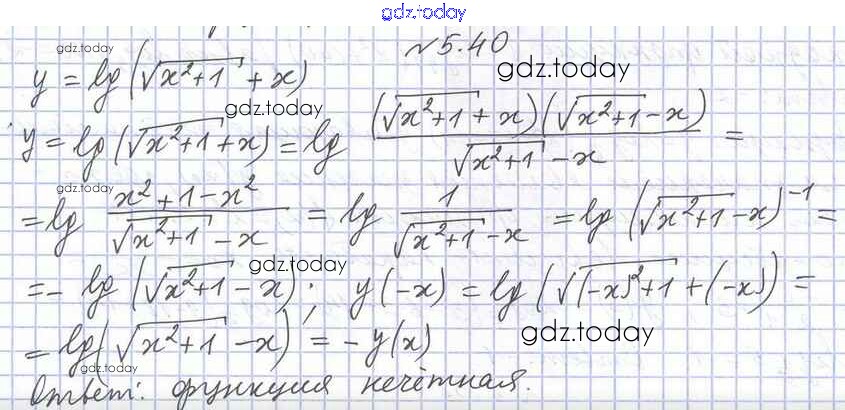 gdz.today
№ 5.40
gdz.today
y = lg (√(x²+1) + x)
gdz.today
gdz.today
y = lg (√(x²+1) + x) = lg ((√(x²+1) + x)(√(x²+1) - x))/(√(x²+1) - x) =
gdz.today
= lg (x² + 1 - x²)/(√(x²+1) - x) = lg 1/(√(x²+1) - x) = lg (√(x²+1) - x)⁻¹ =
gdz.today
= - lg (√(x²+1) - x); y(-x) = lg (√((-x)²+1) + (-x)) =
gdz.today
= lg (√(x²+1) - x) = - y(x)
gdz.today
Ответ: функция нечётная.